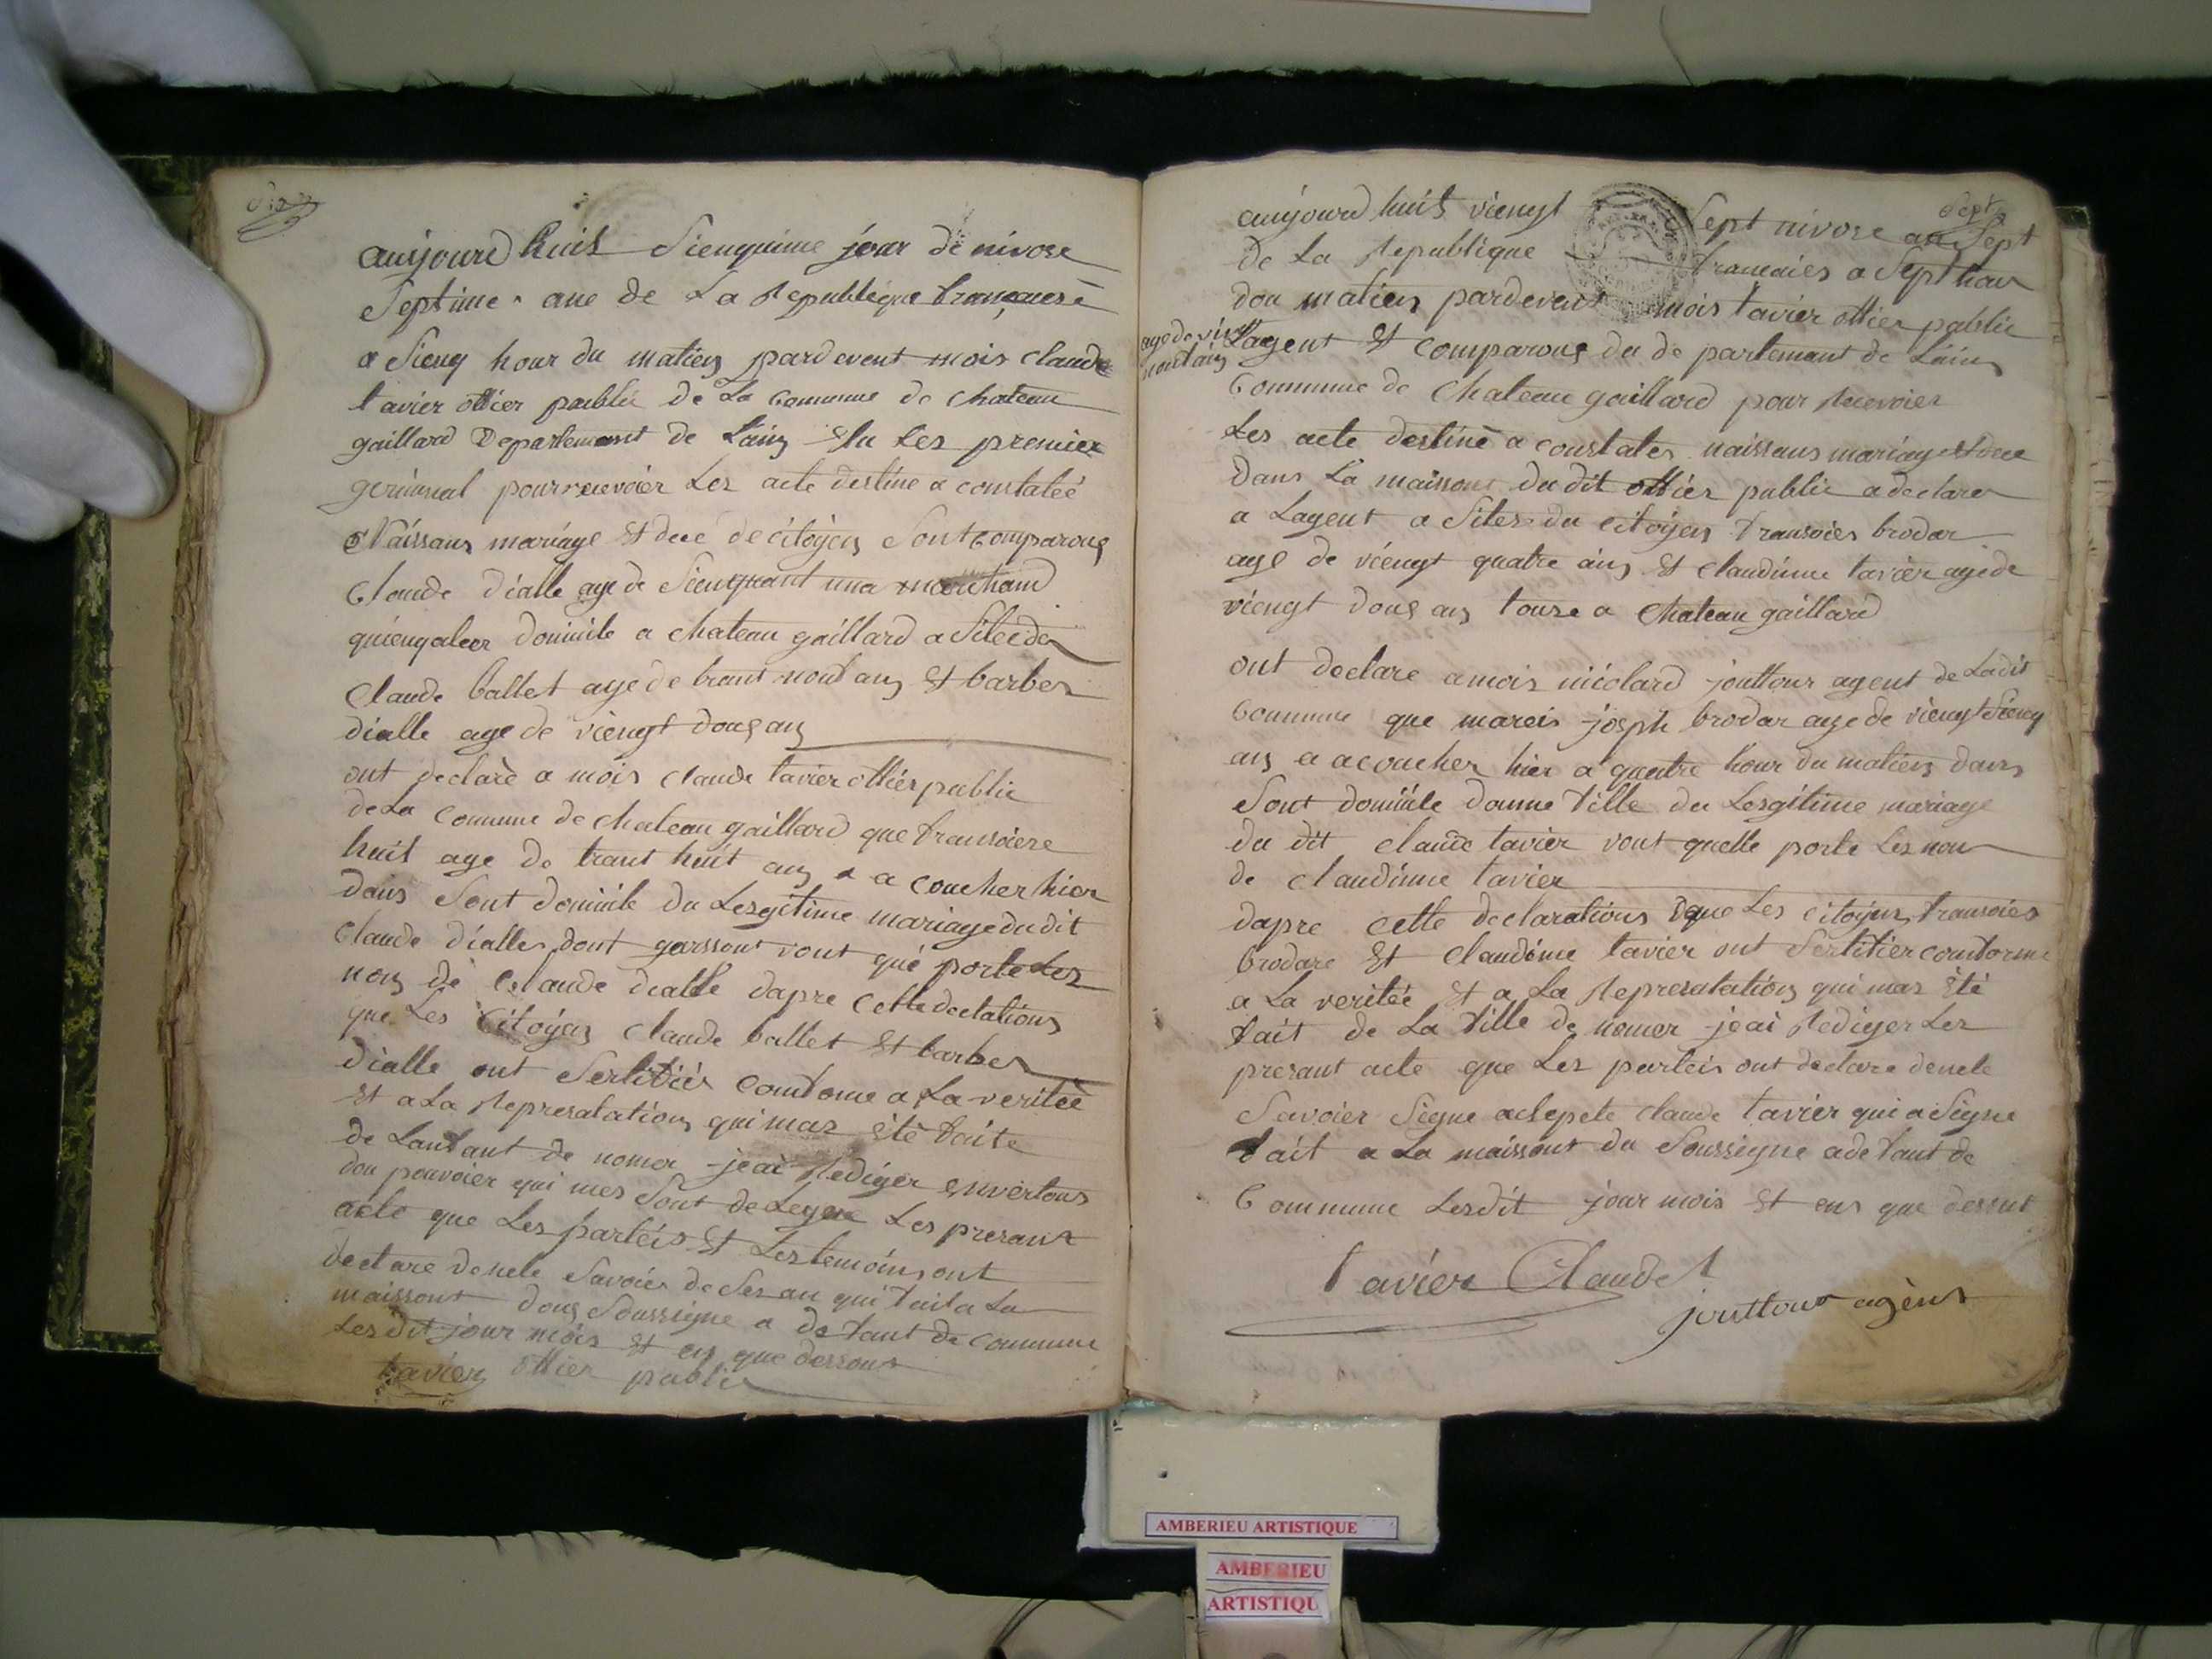 aujourd huit Sienquime jour de nivose
Septime ane de La Republique francaise
a Sienq hour du matien pardevent mois claude
favier offier publie de La Commune de chateau
gaillard Departement de Lain elu Les premier
germinal pour recevoier Les acte destine a constateé
Naissans mariage et dece de citoyen Sont comparous
Claude dialle age de Sienquant una marchand
quiengaleer domicile a chateau gaillard a
Claude ballet age de trant nouf ans et barbe
dialle age de viengt doux an
ont declare a mois claude favier offier publie
de La Commune de chateau gaillard que fransoiese
huit age de trant huit ans a a coucher hier
dans Sont domicile du Lesgitime mariage du dit
Claude dialle dont garssont vont qué porte Les
non de Claude dialle dapre Cette declations
que Les Citoyen claude ballet et barbe
dialle ont Sertifiés comfome a La veriteé
et a La Represatation qui mas été faite
de Lanfant de nomer jeai Rediger envertous
dou pouvoier qui mes Sont de Legue Les presant
acte que Les parteis et Les temoins ont
declare de nele Savoier de Ses au qui fait a La
maissont dous Soussigne a de faut de Commune
Lesdit jour mois et en que dessout
favier offier publie
Sept
aujourd huit viengt Sept nivose an Sept
de La Republique francaies a Sept hour
dou matien pardevent mois favier offier publie
age de vient nouf ans
Lagent et comparous du departemant de Lain
Commune de Chateau gaillard pour Recevoier
Les acte destiné a constater naissans mariage et dece
Dans La maissont du dit offier publie a declare
a Lagent a du citoyen fransoies brodar
age de viengt quatre ans et claudinne favier age de
viengt doux ans touse a Chateau gaillard
ont declare a mois nicolard jouffour agent de Ladit
Commune que mareis josph brodar age de viengt Sienq
ans a acoucher hier a quatre hour du matien dans
Sont domicile donne fille du Lesgitime mariage
du dit claude favier vont quelle porte Les non
de claudinne favier
dapre cette declarations que Les citoyen fransoies
brodare et Claudinne favier ont Sertifier comforme
a La veriteé et a La Represatation qui mas été
fait de La fille de nomer jeai Rediger Les
presant acte que Les parteis ont declare de nele
Savoier Signe claude favier qui a Signe
fait a La maissont du Soussigne a de faut de
Commune Lesdit jour mois et ens que desout
favier Claude
jouffour agent
AMBERIEU ARTISTIQUE
AMBERIEU
ARTISTIQU